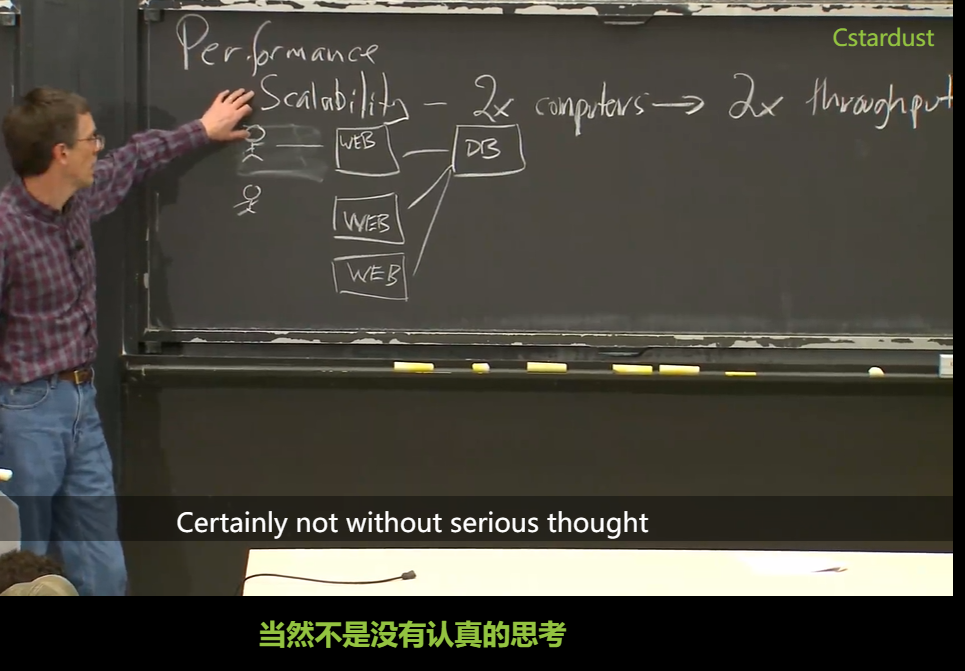 Cstardust
Performance
Scalability – 2x computers → 2x throughput
WEB
DB
WEB
WEB
Certainly not without serious thought
当然不是没有认真的思考